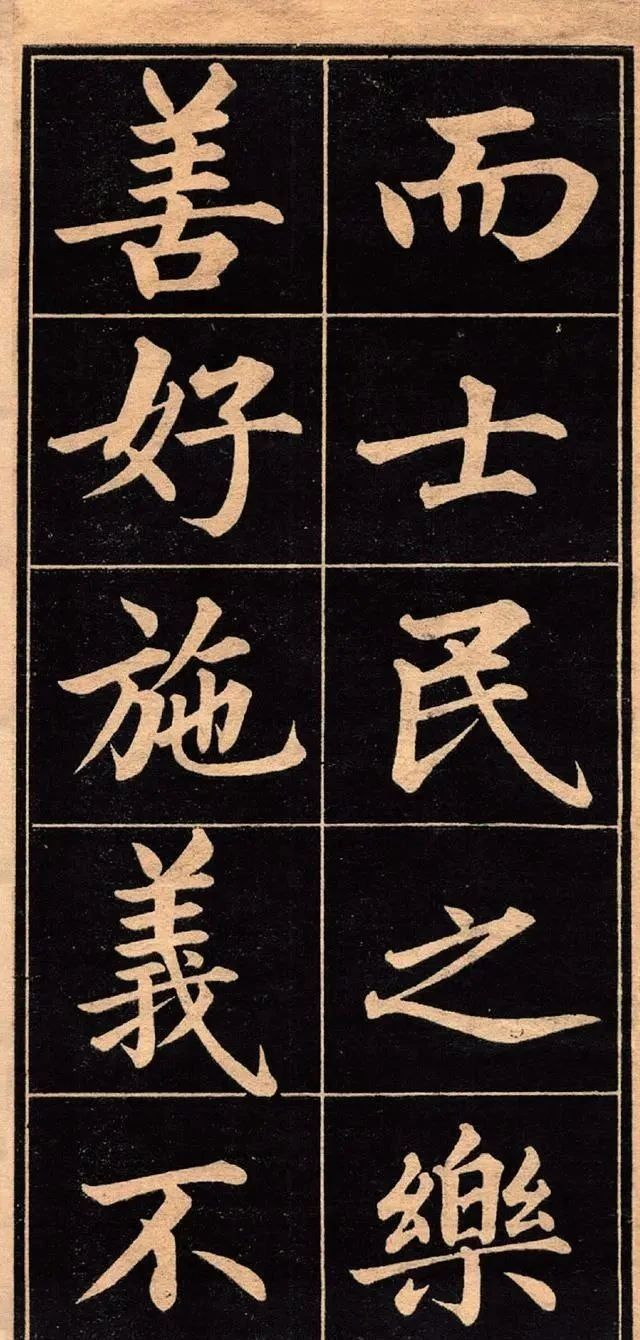 而士民之樂
善好施義不